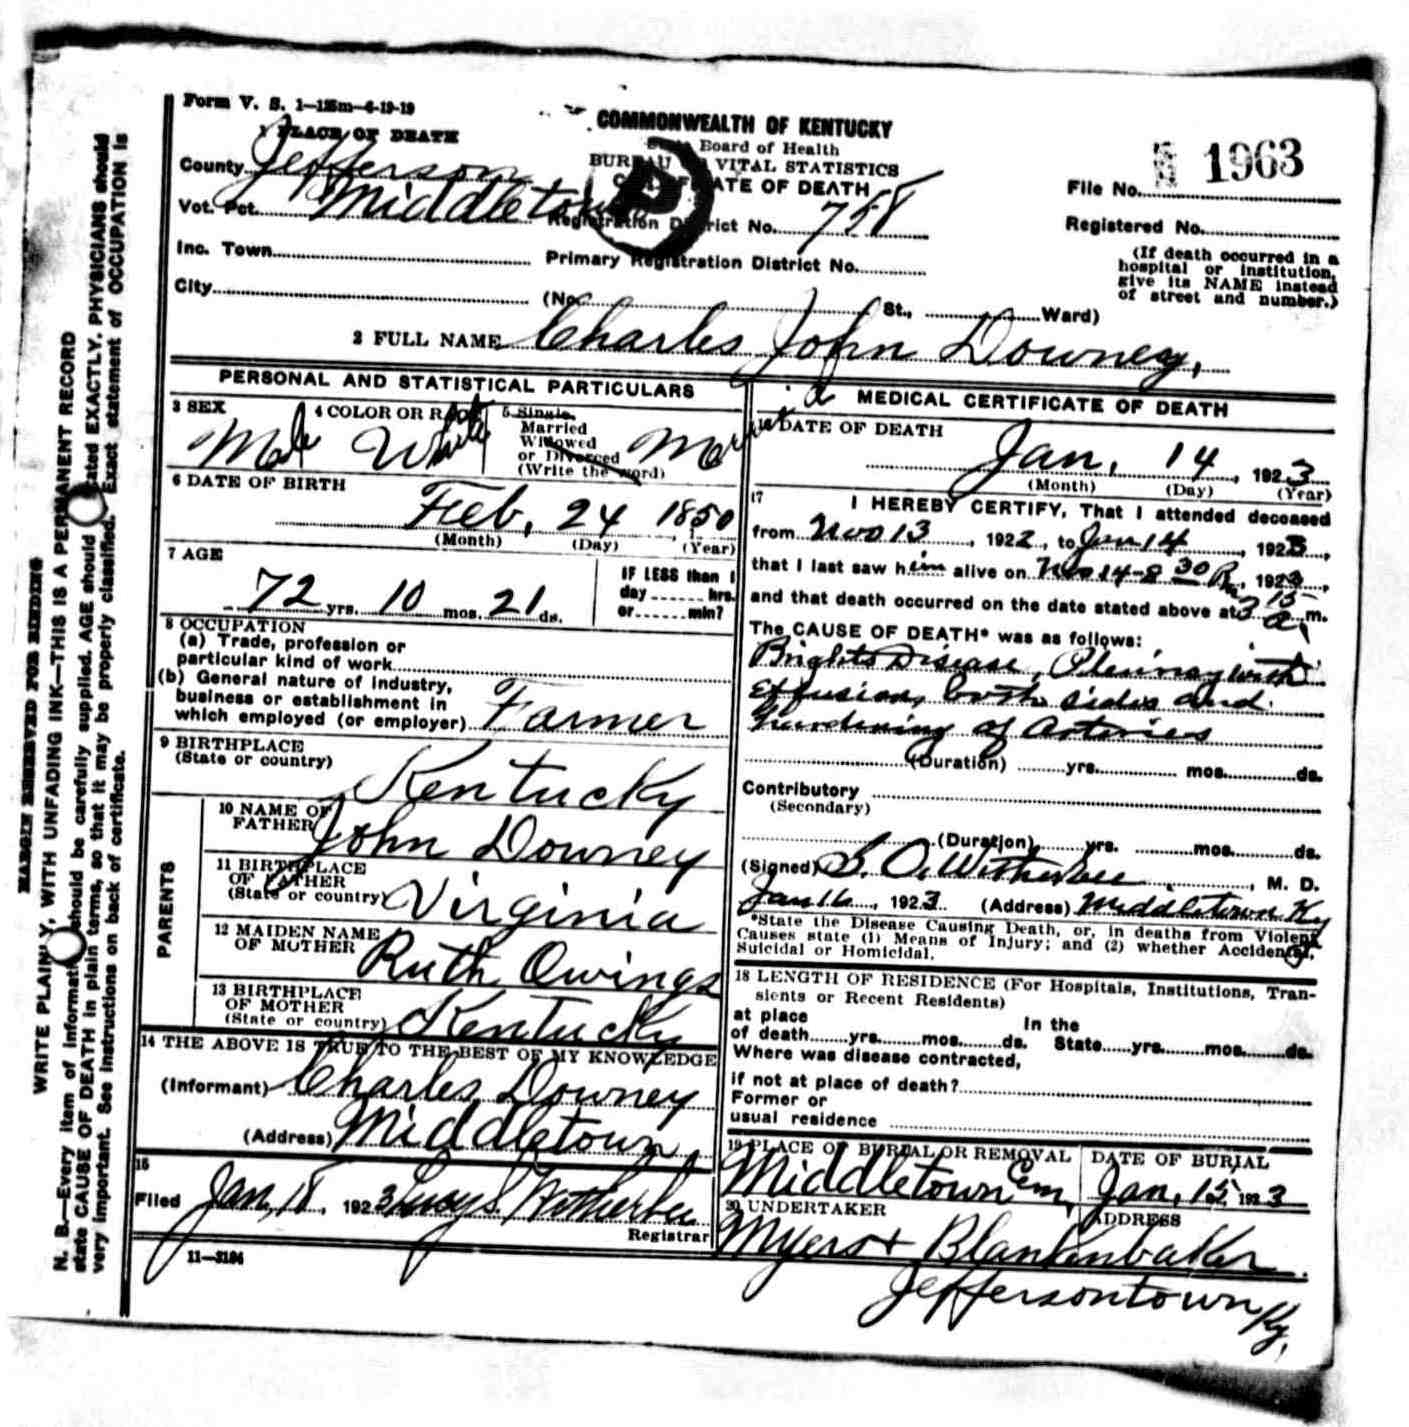 Form V. S. 1—125m—6-19-19
1 PLACE OF DEATH
COMMONWEALTH OF KENTUCKY
State Board of Health
BUREAU OF VITAL STATISTICS
CERTIFICATE OF DEATH
File No. 1963
County Jefferson
Vot. Pct. Middletown
Registration District No. 758
Registered No.
Inc. Town
Primary Registration District No.
(If death occurred in a hospital or institution, give its NAME instead of street and number.)
City (No. St., Ward)
2 FULL NAME Charles John Downey,
PERSONAL AND STATISTICAL PARTICULARS
3 SEX Male
4 COLOR OR RACE White
5 Single, Married Widowed or Divorced (Write the word) Married
6 DATE OF BIRTH
Feb. 24, 1850
(Month) (Day) (Year)
7 AGE
72 yrs. 10 mos. 21 ds.
IF LESS than 1 day ...... hrs. or ...... min?
8 OCCUPATION
(a) Trade, profession or
particular kind of work
(b) General nature of industry,
business or establishment in
which employed (or employer) Farmer
9 BIRTHPLACE
(State or country) Kentucky
PARENTS
10 NAME OF FATHER John Downey
11 BIRTHPLACE OF FATHER (State or country) Virginia
12 MAIDEN NAME OF MOTHER Ruth Owings
13 BIRTHPLACE OF MOTHER (State or country) Kentucky
14 THE ABOVE IS TRUE TO THE BEST OF MY KNOWLEDGE
(Informant) Charles Downey
(Address) Middletown
15
Filed Jan. 18, 1923 Lucy S. Witherbee
Registrar
11—3184
MEDICAL CERTIFICATE OF DEATH
16 DATE OF DEATH
Jan. 14, 1923
(Month) (Day) (Year)
17 I HEREBY CERTIFY, That I attended deceased
from Nov 13, 1922, to Jan 14, 1923,
that I last saw him alive on 14-8 30 P.m, 1923,
and that death occurred on the date stated above at 3 15 a. m.
The CAUSE OF DEATH* was as follows:
Brights Disease, Pleurisy with
effusion, both sides and
hardening of Arteries
(Duration) yrs. mos. ds.
Contributory
(Secondary)
(Duration) yrs. mos. ds.
(Signed) S. O. Witherbee, M. D.
Jan 16, 1923 (Address) Middletown Ky
*State the Disease Causing Death, or, in deaths from Violent
Causes state (1) Means of Injury; and (2) whether Accidental,
Suicidal or Homicidal.
18 LENGTH OF RESIDENCE (For Hospitals, Institutions, Tran-
sients or Recent Residents)
at place In the
of death yrs. mos. ds. State yrs. mos. ds.
Where was disease contracted,
if not at place of death?
Former or
usual residence
19 PLACE OF BURIAL OR REMOVAL
Middletown Cem.
DATE OF BURIAL
Jan. 15, 1923
20 UNDERTAKER
Myers & Blankenbaker
ADDRESS
Jeffersontown Ky.
MARGIN RESERVED FOR BINDING
WRITE PLAINLY, WITH UNFADING INK—THIS IS A PERMANENT RECORD
N. B.—Every item of information should be carefully supplied. AGE should be stated EXACTLY. PHYSICIANS should
state CAUSE OF DEATH in plain terms, so that it may be properly classified. Exact statement of OCCUPATION is
very important. See instructions on back of certificate.